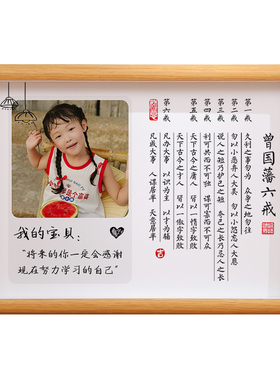 曾国藩六戒
第一戒
久利之事勿为 众争之地勿往
第二戒
勿以小恶弃人大美 勿以小怨忘人大恩
第三戒
说人之短乃护己之短 夸己之长乃忌人之长
第四戒
利可共而不可独 谋可寡而不可众
第五戒
天下古今之庸人 皆以一惰字致败
天下古今之才人 皆以一傲字致败
第六戒
凡办大事 以识为主 以才为辅
凡成大事 人谋居半 天意居半
我的宝贝:
“将来的你一定会感谢
现在努力学习的自己”